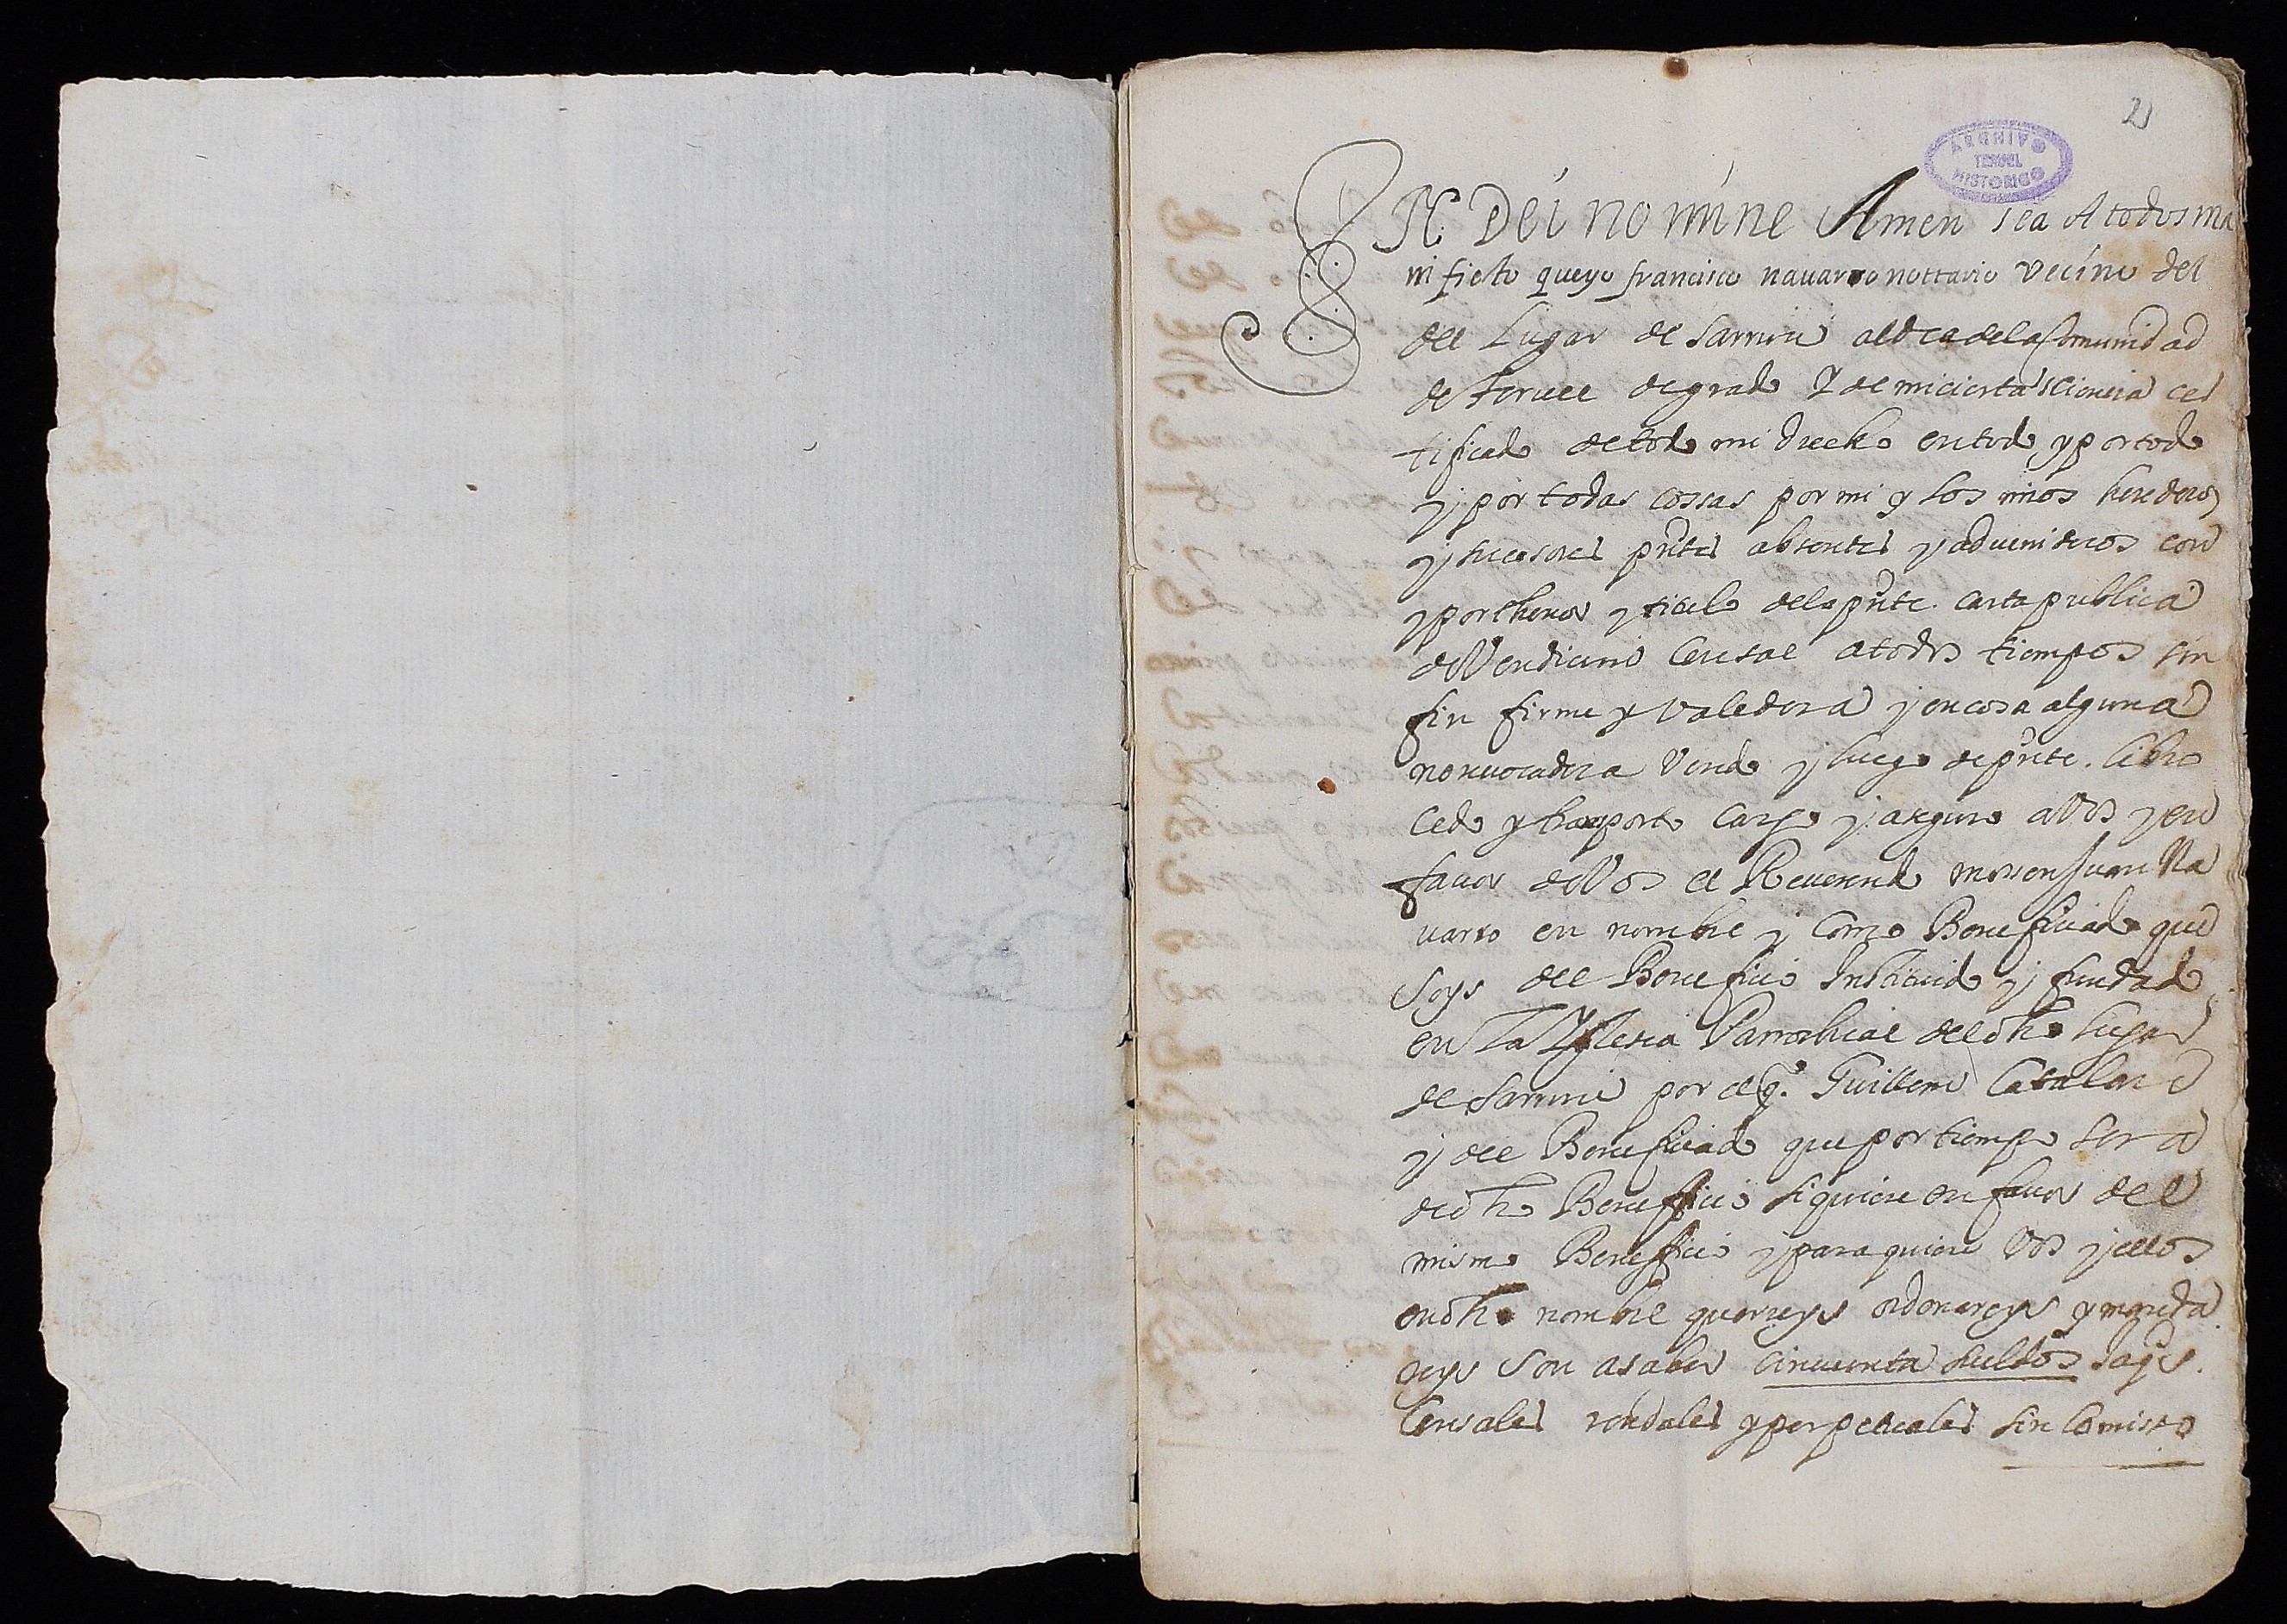 2
IN Dei nomine Amen sea A todos ma
nifiesto que yo francisco nauarro nottario vecino del
del Lugar de Sarrion aldea de la Comunidad
de teruel de grado Y de mi cierta sciencia cer
tificado de todo mi drecho en todo y por todo
y por todas cossas por mi y los mios herederos
y sucesores pntes absentes y aduenideros con
y por thenor y titulo de la pnte. carta publica
de Vendicion Censal a todos tiempos sin
fin firme y valedera y en cosa alguna
no reuocadera Vendo y luego de pnte. libro
Cedo y transporto cargo y aseguro a Vos y en
fauor de Vos el Reuerendo mossen Juan Na
uarro en nombre y Como Beneficiado que
soys del Beneficio Instituido y fundado
en La Yglesia Parrochial del dho lugar
de Sarrion por el q. Guillem Catalan
y del Beneficiado que por tiempo sera
de dho Beneficio siquiere en fauor del
mismo Benefficio y para quien Vos y ellos
en dho nombre querreys ordenareys y manda
reys Son a saber cincuenta sueldos Jaqs.
Censales rendales y perpetuales sin Comisso
ARCHIVO
HISTORICO
TERUEL